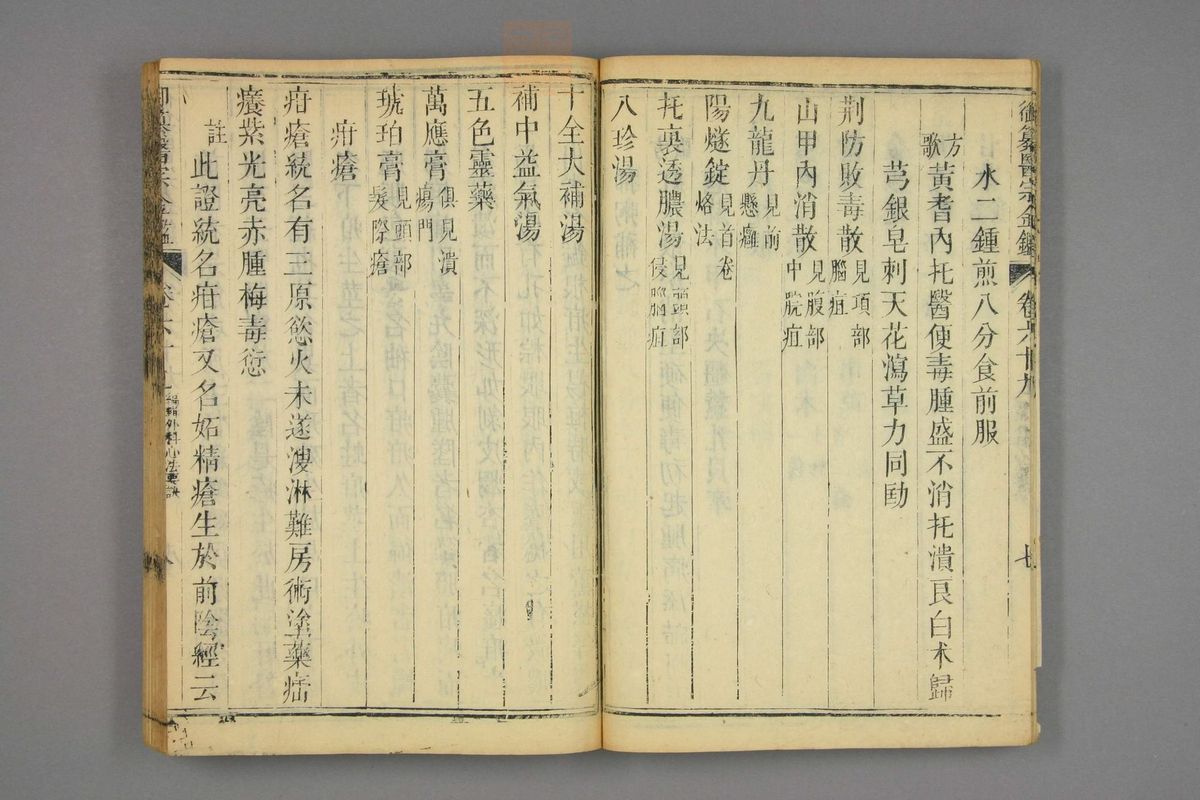 御纂醫宗金鑑 卷六十九 七
水二鍾煎八分食前服
方歌 黃耆內托醫便毒腫盛不消托潰良白朮歸
芎銀皂刺天花瀉草力同勷
荆防敗毒散 見項部腦疽
山甲內消散 見腹部中脘疽
九龍丹 見前懸癰
陽燧錠 見首卷烙法
托裏透膿湯 見頭部侵腦疽
八珍湯
十全大補湯
補中益氣湯
五色靈藥
萬應膏 俱見潰瘍門
琥珀膏 見頭部髮際瘡
疳瘡
疳瘡統名有三原慾火未遂溲淋難房術塗藥瘙
癢紫光亮赤腫梅毒愆
註 此證統名疳瘡又名妬精瘡生於前陰經云
御纂醫宗金鑑 卷六十九 編輯外科心法要訣